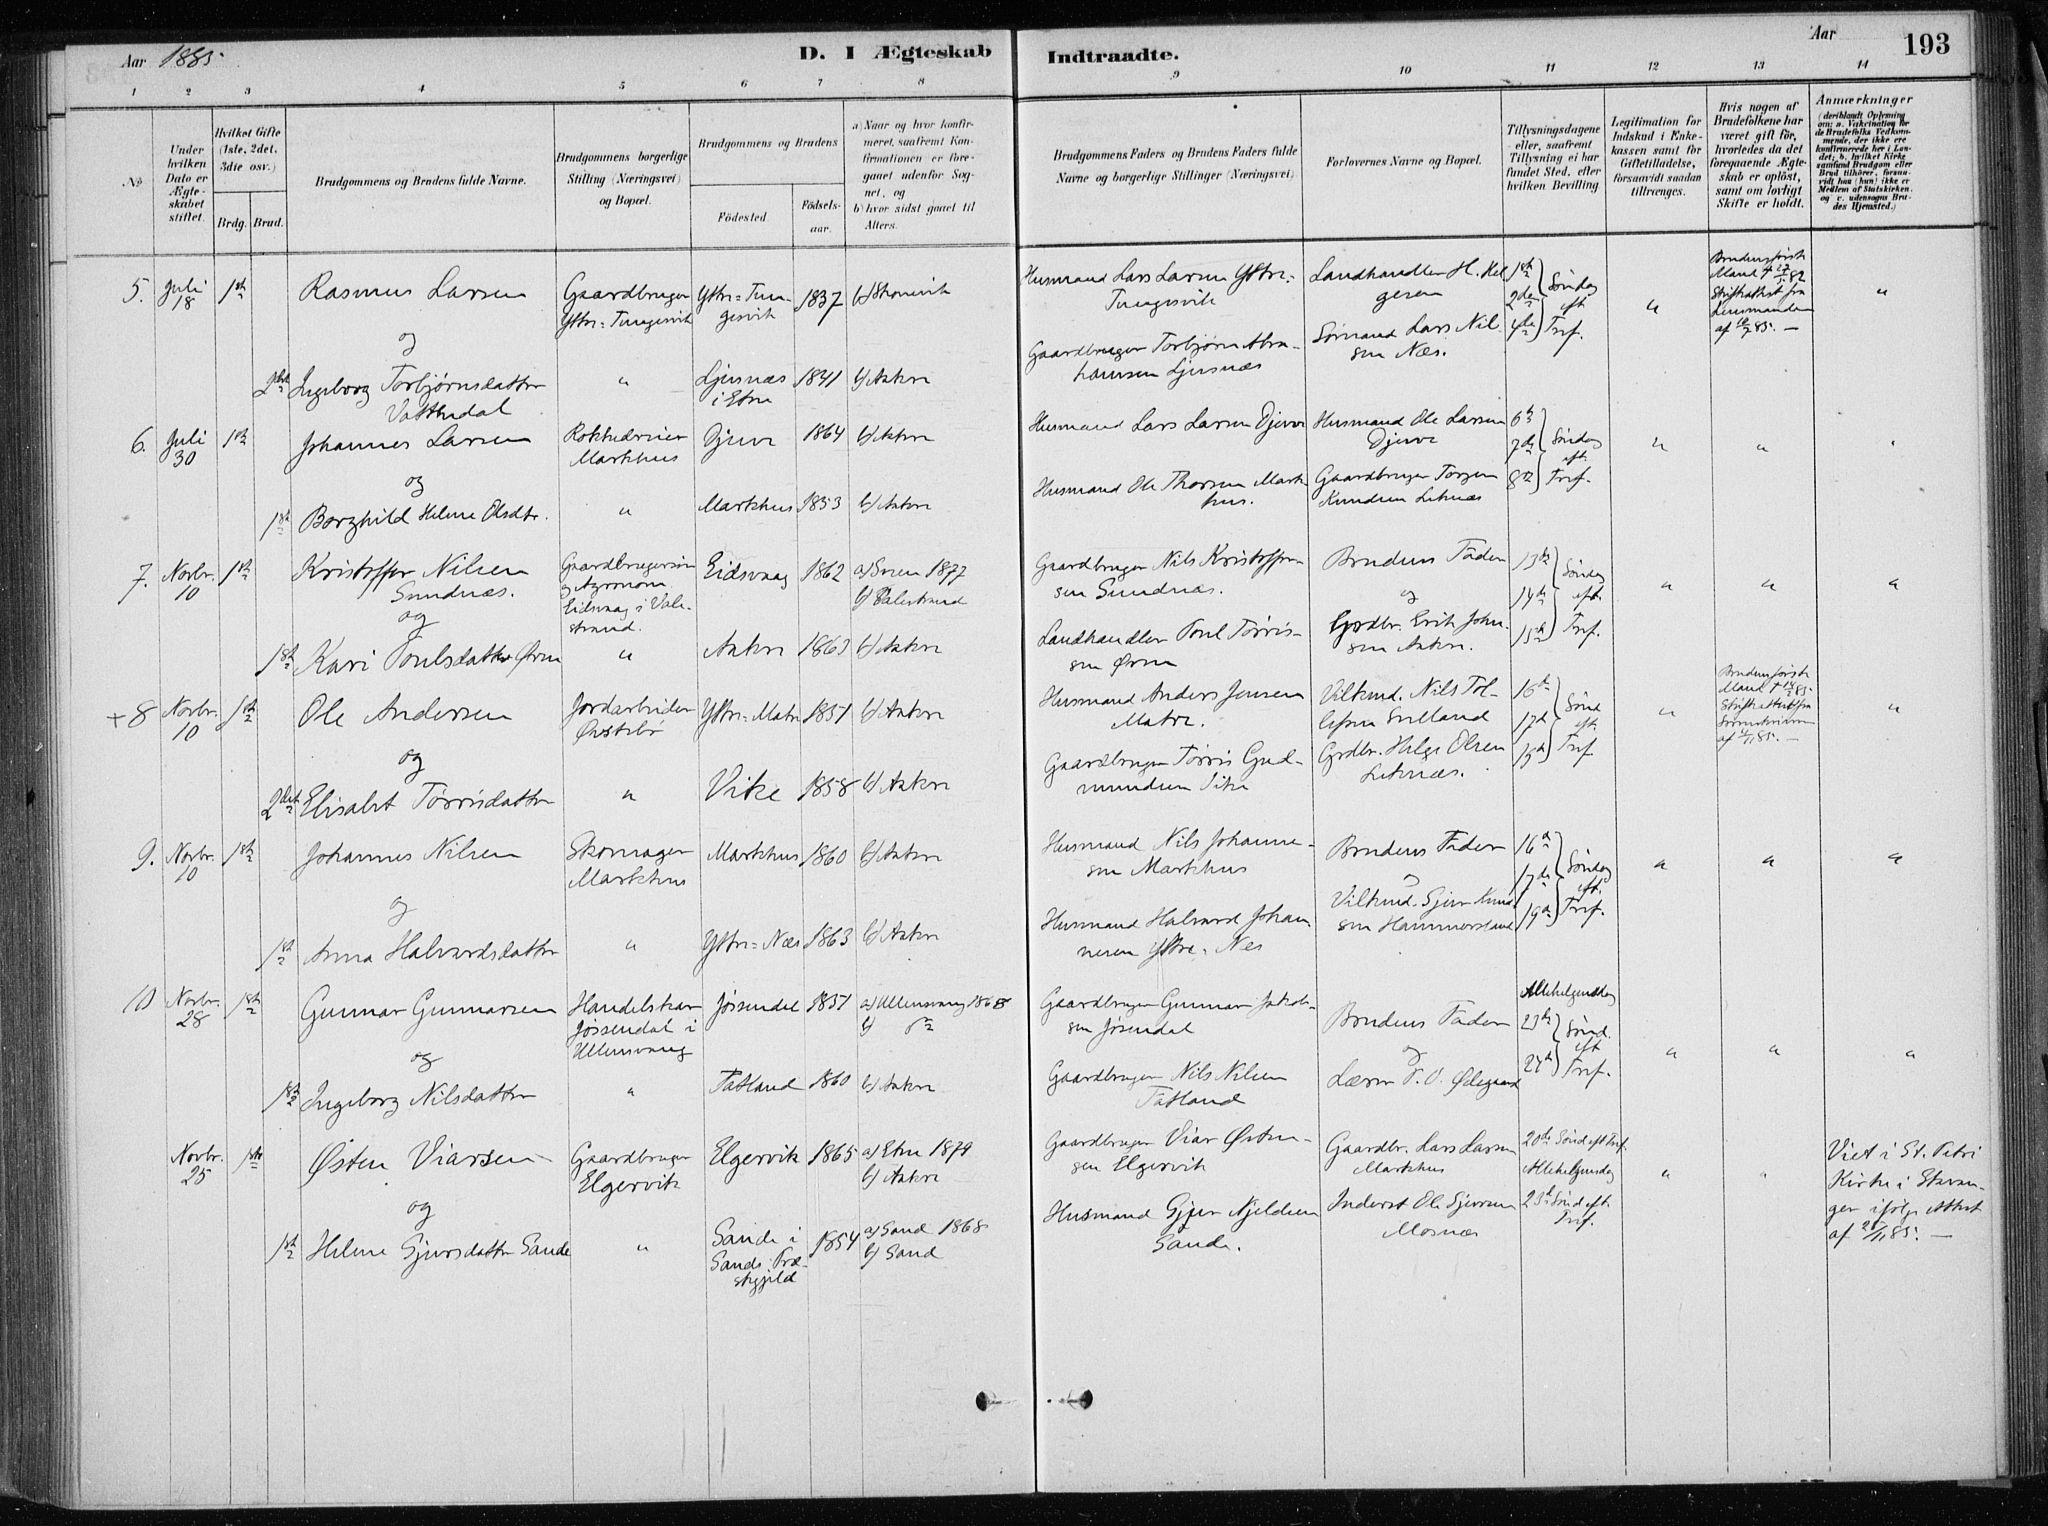 Aar 1885.
D. I Ægteskab Indtraadte.
Aar
193
1 2 3 4 5 6 7 8 9 10 11 12 13 14
No
Under hvilken Dato er Ægteskabet stiftet.
Hvilket Gifte (1ste, 2det, 3dte osv.)
Brdg. Brud.
Brudgommens og Brudens fulde Navne.
Brudgommens borgerlige Stilling (Næringsvei) og Bopæl.
Brudgommens og Brudens
Födested.
Födselsaar.
a) Naar og hvor konfirmeret, saafremt Konfirmationen er foregaaet udenfor Sognet, og
b) hvor sidst gaaet til Alters.
Brudgommens Faders og Brudens Faders fulde Navne og borgerlige Stillinger (Næringsvei)
Forlovernes Navne og Bopæl.
Tillysningsdagene eller, saafremt Tillysning ei har fundet Sted, efter hvilken Bevilling
Legitimation for Indskud i Enkekassen samt for Giftetilladelse, forsaavidt saadan tiltrænges.
Hvis nogen af Brudefolkene har været gift för, hvorledes da det foregaaende Ægteskab er oplöst, samt om lovligt Skifte er holdt.
Anmærkninger
(deriblandt Oplysning om: a. Vakcination for de Brudefolks Vedkommende, der ikke ere konfirmerede her i Landet; b. hvilket Kirkesamfund Brudgom eller Brud tilhörer, forsaavidt han (hun) ikke er Medlem af Statskirken, og c. udensogns Brudes Hjemsted.)
5. Juli 18 1ste Rasmus Larsen
Gaardbruger Yttre-Tungesvik
Yttre-Tungesvik 1837 b) Skonevik
Husmand Lars Larsen Yttre-Tungesvik
Landhandler H. Helgesen
1ste 2den 4de Søndag eft. Tref.
"
Brudens første Mand † Skifteattest fra Lensmanden af 85. —
"
og
2det Ingeborg Torbjørnsdatter Vattedal
" Ljusnæs i Etne 1841 b) Aakre
Gaardbruger Torbjørn Abrahamsen Ljusnæs
Sømand Lars Nilsen Næs.
6. Juli 30 1ste Johannes Larsen
Rokkedreier Markhus
Djuve 1864 b) Aakre
Husmand Lars Larsen Djuve
Husmand Ole Larsen Djuve
6te 7de 8de Søndag eft. Tref.
" " "
og
1ste Borghild Helene Olsdtr.
" Markhus 1853 b) Aakre
Husmand Ole Thorsen Markhus.
Gaardbruger Torger Knudsen Leknæs
7. Novbr. 10 1ste Kristoffer Nilsen Sundnæs.
Gaardbrugersøn og Agronom Eidsvaag i Valestrand.
Eidsvaag 1862 a) Sveen 1877 b) Valestrand
Gaardbruger Nils Kristoffersen Sundnæs.
Brudens Fader
13de 14de 15de Søndag eft. Tref.
" " "
og
1ste Kari Poulsdatter Øvra
" Aakre 1863 b) Aakre
Landhandler Poul Tørrissen Øvra
og Grdbr. Erik Johnsen Aakre.
+8 Novbr. 10 1ste Ole Andersen
Jordarbeider Østebø
Yttre-Matre 1851 b) Aakre
Husmand Anders Jensen Matre.
Vilkmd. Nils Tollefsen
16de 17de Sønd eft. Tref.
"
Brudens første Mand † 85. Skifteattest fra Sorenskriveren af 85. —
"
og
2det Elisabet Tørrisdatter
" Vike 1858 b) Aakre
Gaardbruger Tørris Gudmundsen Vike
Grdbr. Helge Olsen Leknæs.
9. Novbr. 10 1ste Johannes Nilsen
Skomager Markhus
Markhus 1860 b) Aakre
Husmand Nils Johannesen Markhus
Brudens Fader
16de 17de 19de Søndag eft. Tref.
" " "
og
1ste Anna Halvardsdatter
" Yttre-Næs 1863 b) Aakre
Husmand Halvard Johannesen Yttre-Næs
og Vilkmd. Sjur Knudsen Hammersland
10 Novbr. 28 1ste Gunnar Gunnarsen
Handelskar Jøssendal i Ullensvang
Jøssendal 1851 a) Ullensvang 1868 b) do
Gaardbruger Gunnar Jakobsen Jøsendal
Brudens Fader
Allehelgensdag 23de 24de Sønd. eft Tref.
" " "
og
1ste Ingeborg Nilsdatter
" Fatland 1860 b) Aakre
Gaardbruger Nils Nilsen Fatland
og Lærer Ødegaard
Novbr. 25 1ste Østen Viarsen
Gaardbruger Elgervik
Elgervik 1865 a) Etne 1879 b) Aakre
Gaardbruger Viar Østensen Elgervik
Gaardbr. Lars Larsen Markhus
20de Sønd eft Tref.
Allehelgensdag
23de Sønd eft. Tref.
" "
Viet i St. Petri Kirke i Stavanger ifølge Attest af 85. —
og
1ste Helene Sjursdatter Sande
" Sande i Sands Præstegjeld 1854 a) Sand 1868 b) Sand
Husmand Sjur Kjeldsen Sande.
Inderst Ole Sjursen Mosnæs